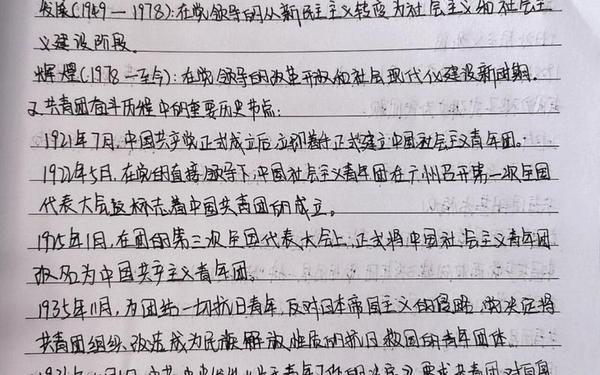 发展(1949—1978):在党领导的从新民主主义转变为社会主义和社会主
义建设阶段。
辉煌(1978—至今):在党领导的改革开放和社会现代化建设新时期.
2.共青团奋斗历程中的重要历史节点:
1921年7月,中国共产党正式成立后,立即着手正式建立中国社会主义青年团。
1922年5月,在党的直接领导下,中国社会主义青年团在广州召开第一次全国
代表大会,这标志着中国共青团的成立。
1925年1月,在团的第三次全国代表大会上,正式将中国社会主义青年团
改名为中国共产主义青年团。
1935年11月,为团结一切抗日青年,反对日本帝国主义的侵略,党决定将
共青团组织改造成为民族解放性质的抗日救国的青年团体